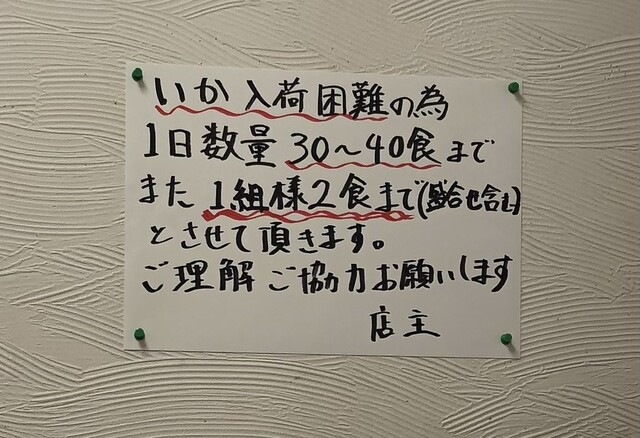 いか入荷困難の為
1日数量30～40食まで
また1組様2食まで(盛合せ含む)
とさせて頂きます。
ご理解ご協力お願いします
店主